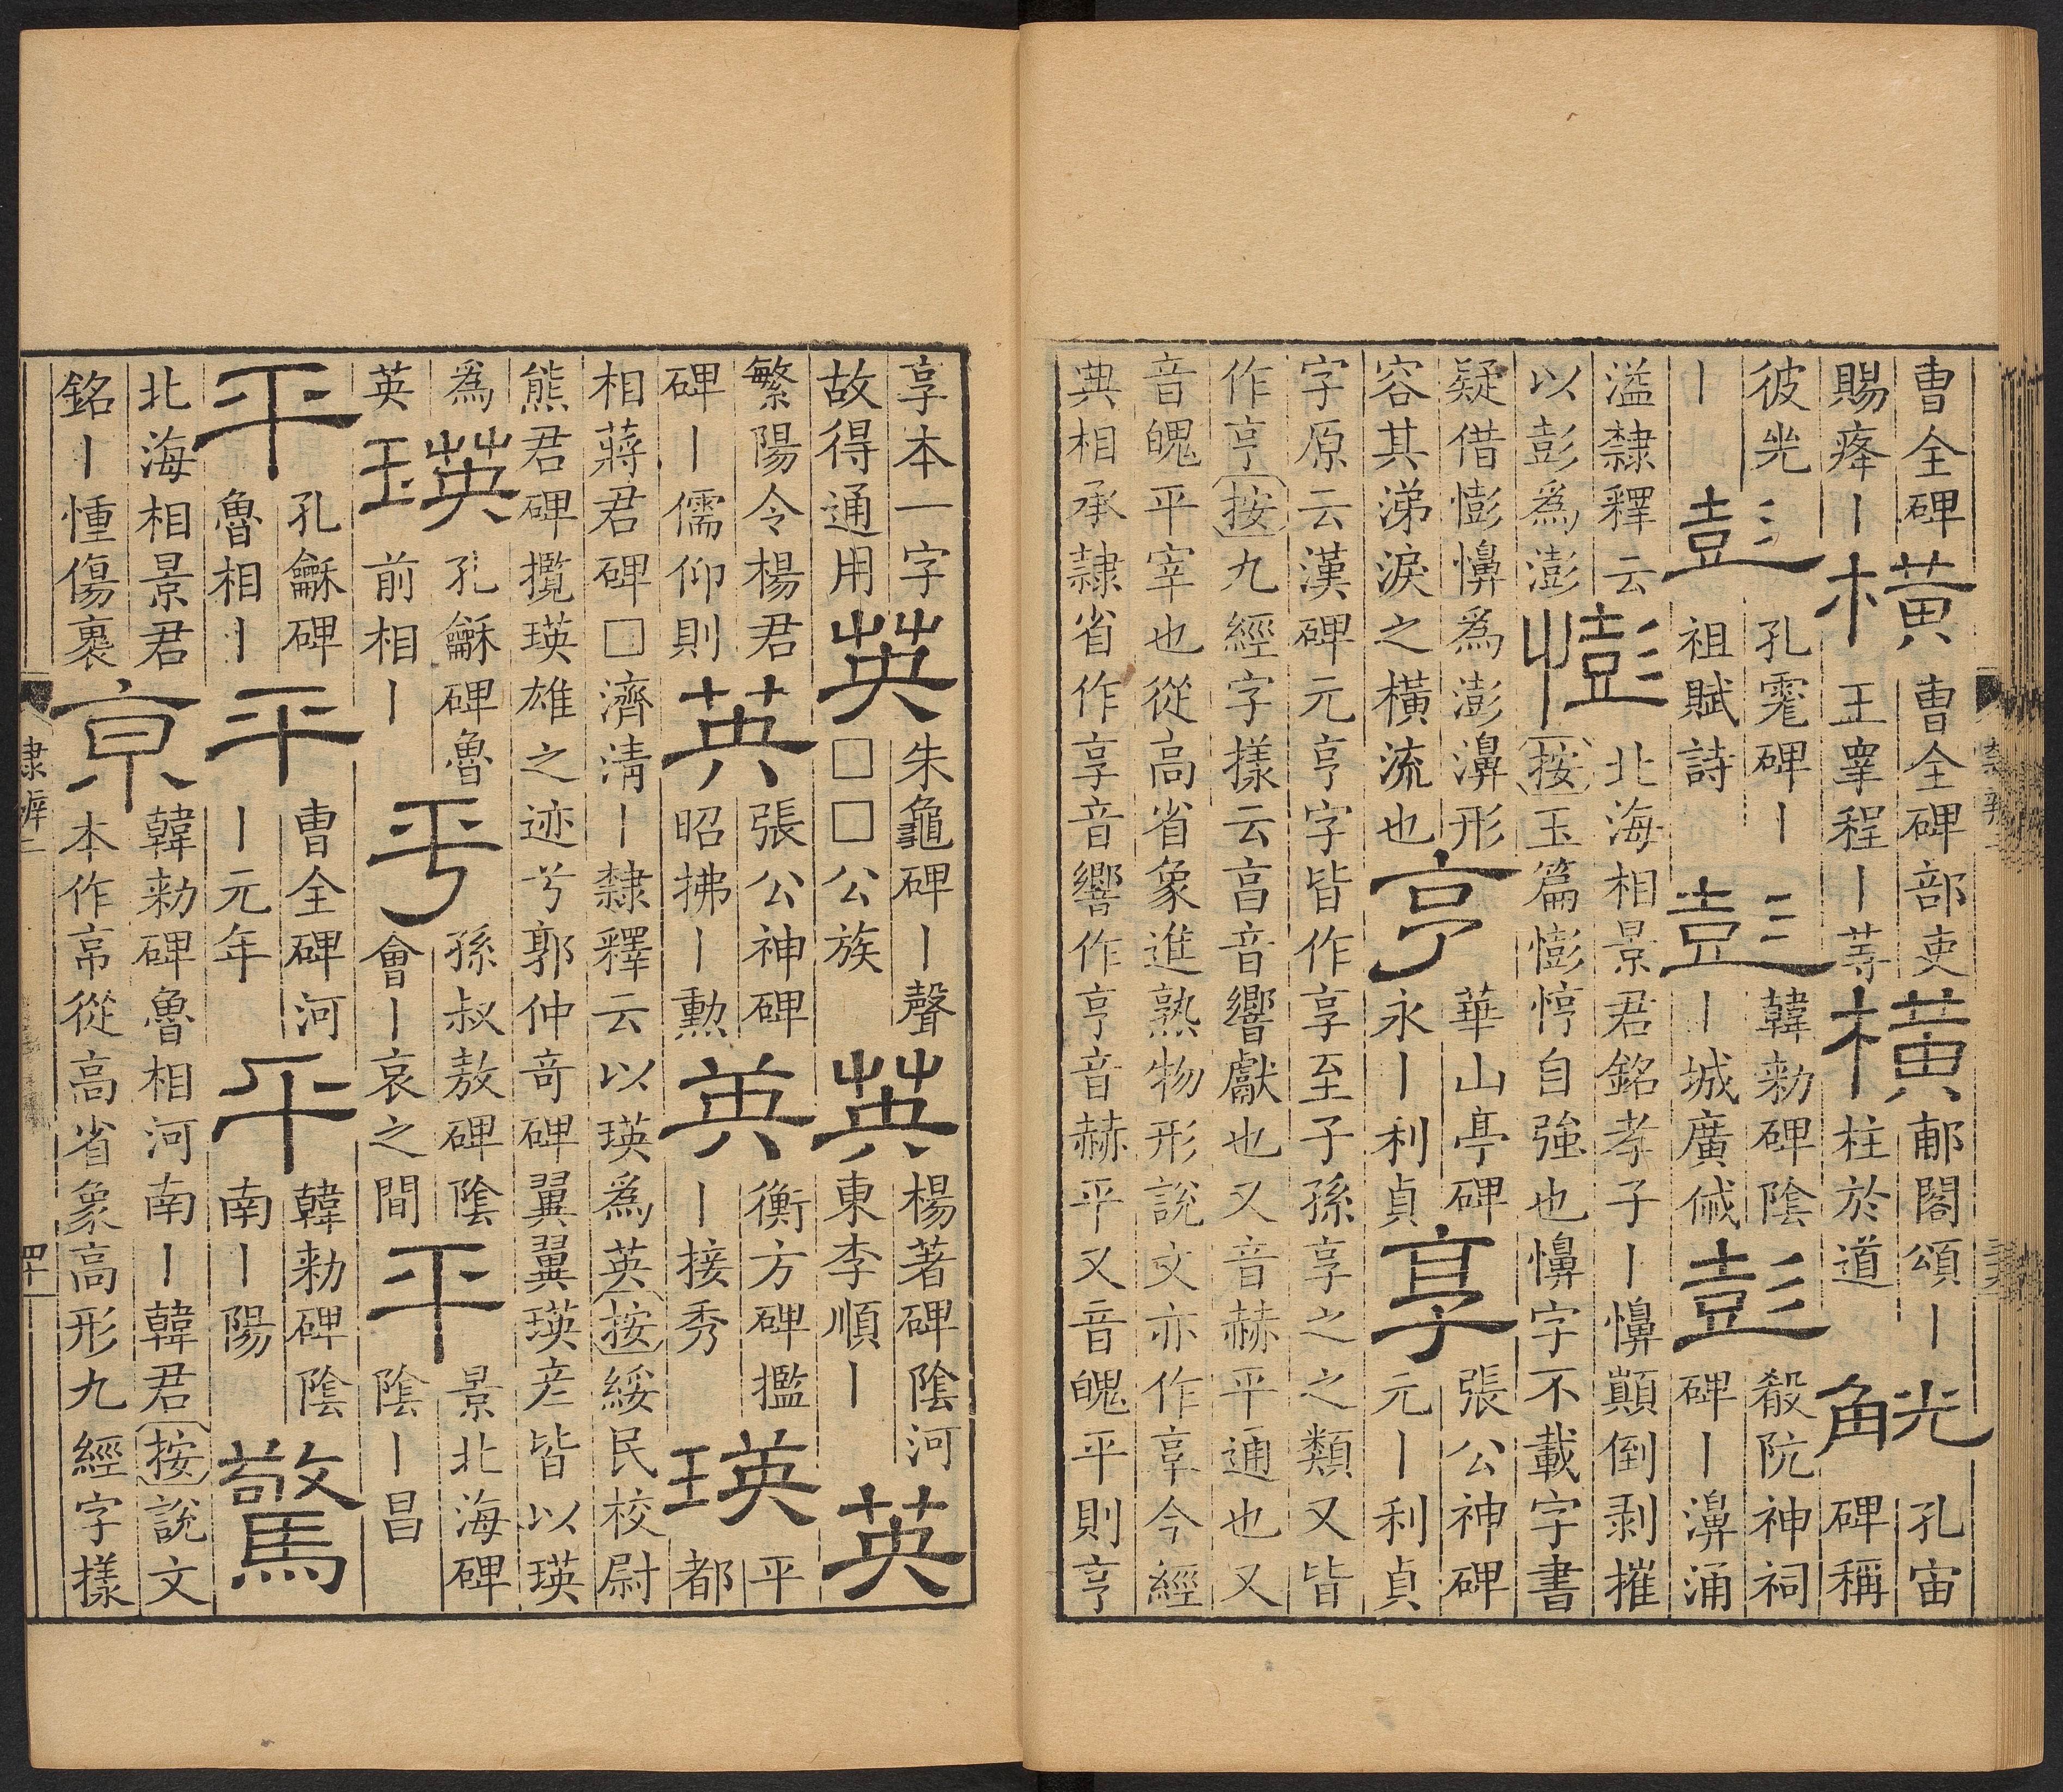 曹全碑
賜瘞丨
橫
曹全碑部吏
王睾程丨等
橫
郙閣頌丨
柱於道
觥
孔宙
碑稱
彼光
丨
彭
孔彪碑丨
祖賦詩
彭
韓勑碑陰
丨城廣㒪
彭
殽阮神祠
碑丨濞涌
溢隸釋云
以彭爲澎
憉
北海相景君銘孝子丨懧顛倒剥摧
按玉篇憉悙自強也懧字不載字書
疑借憉懧爲澎濞形
容其涕淚之橫流也
亨
華山亭碑
永丨利貞
享
張公神碑
元丨利貞
字原云漢碑元亨字皆作享至子孫享之之類又皆
作亨按九經字樣云亯音響獻也又音赫平通也又
音魄平宰也從高省象進熟物形説文亦作享今經
典相承隷省作享音響作亨音赫平又音魄平則亨
享本一字
故得通用
英
朱龜碑丨聲
□□公族
英
楊著碑陰河
東李順丨
英
繁陽令楊君
碑丨儒仰則
英
張公神碑
昭拂丨勲
英
衡方碑㩜
丨接秀
瑛
平
都
相蔣君碑□濟清丨隸釋云以瑛爲英按綏民校尉
熊君碑攬瑛雄之迹兮郭仲奇碑翼翼瑛彦皆以瑛
爲
英
瑛
孔龢碑魯
前相丨
平
孫叔敖碑陰
會丨哀之間
平
景北海碑
陰丨昌
平
孔龢碑
魯相丨
平
曹全碑河
丨元年
平
韓勑碑陰
南丨陽
驚
北海相景君
銘丨慟傷裹
京
韓勑碑魯相河南丨韓君按説文
本作𠅘從高省象高形九經字樣
隸辨二
四十一